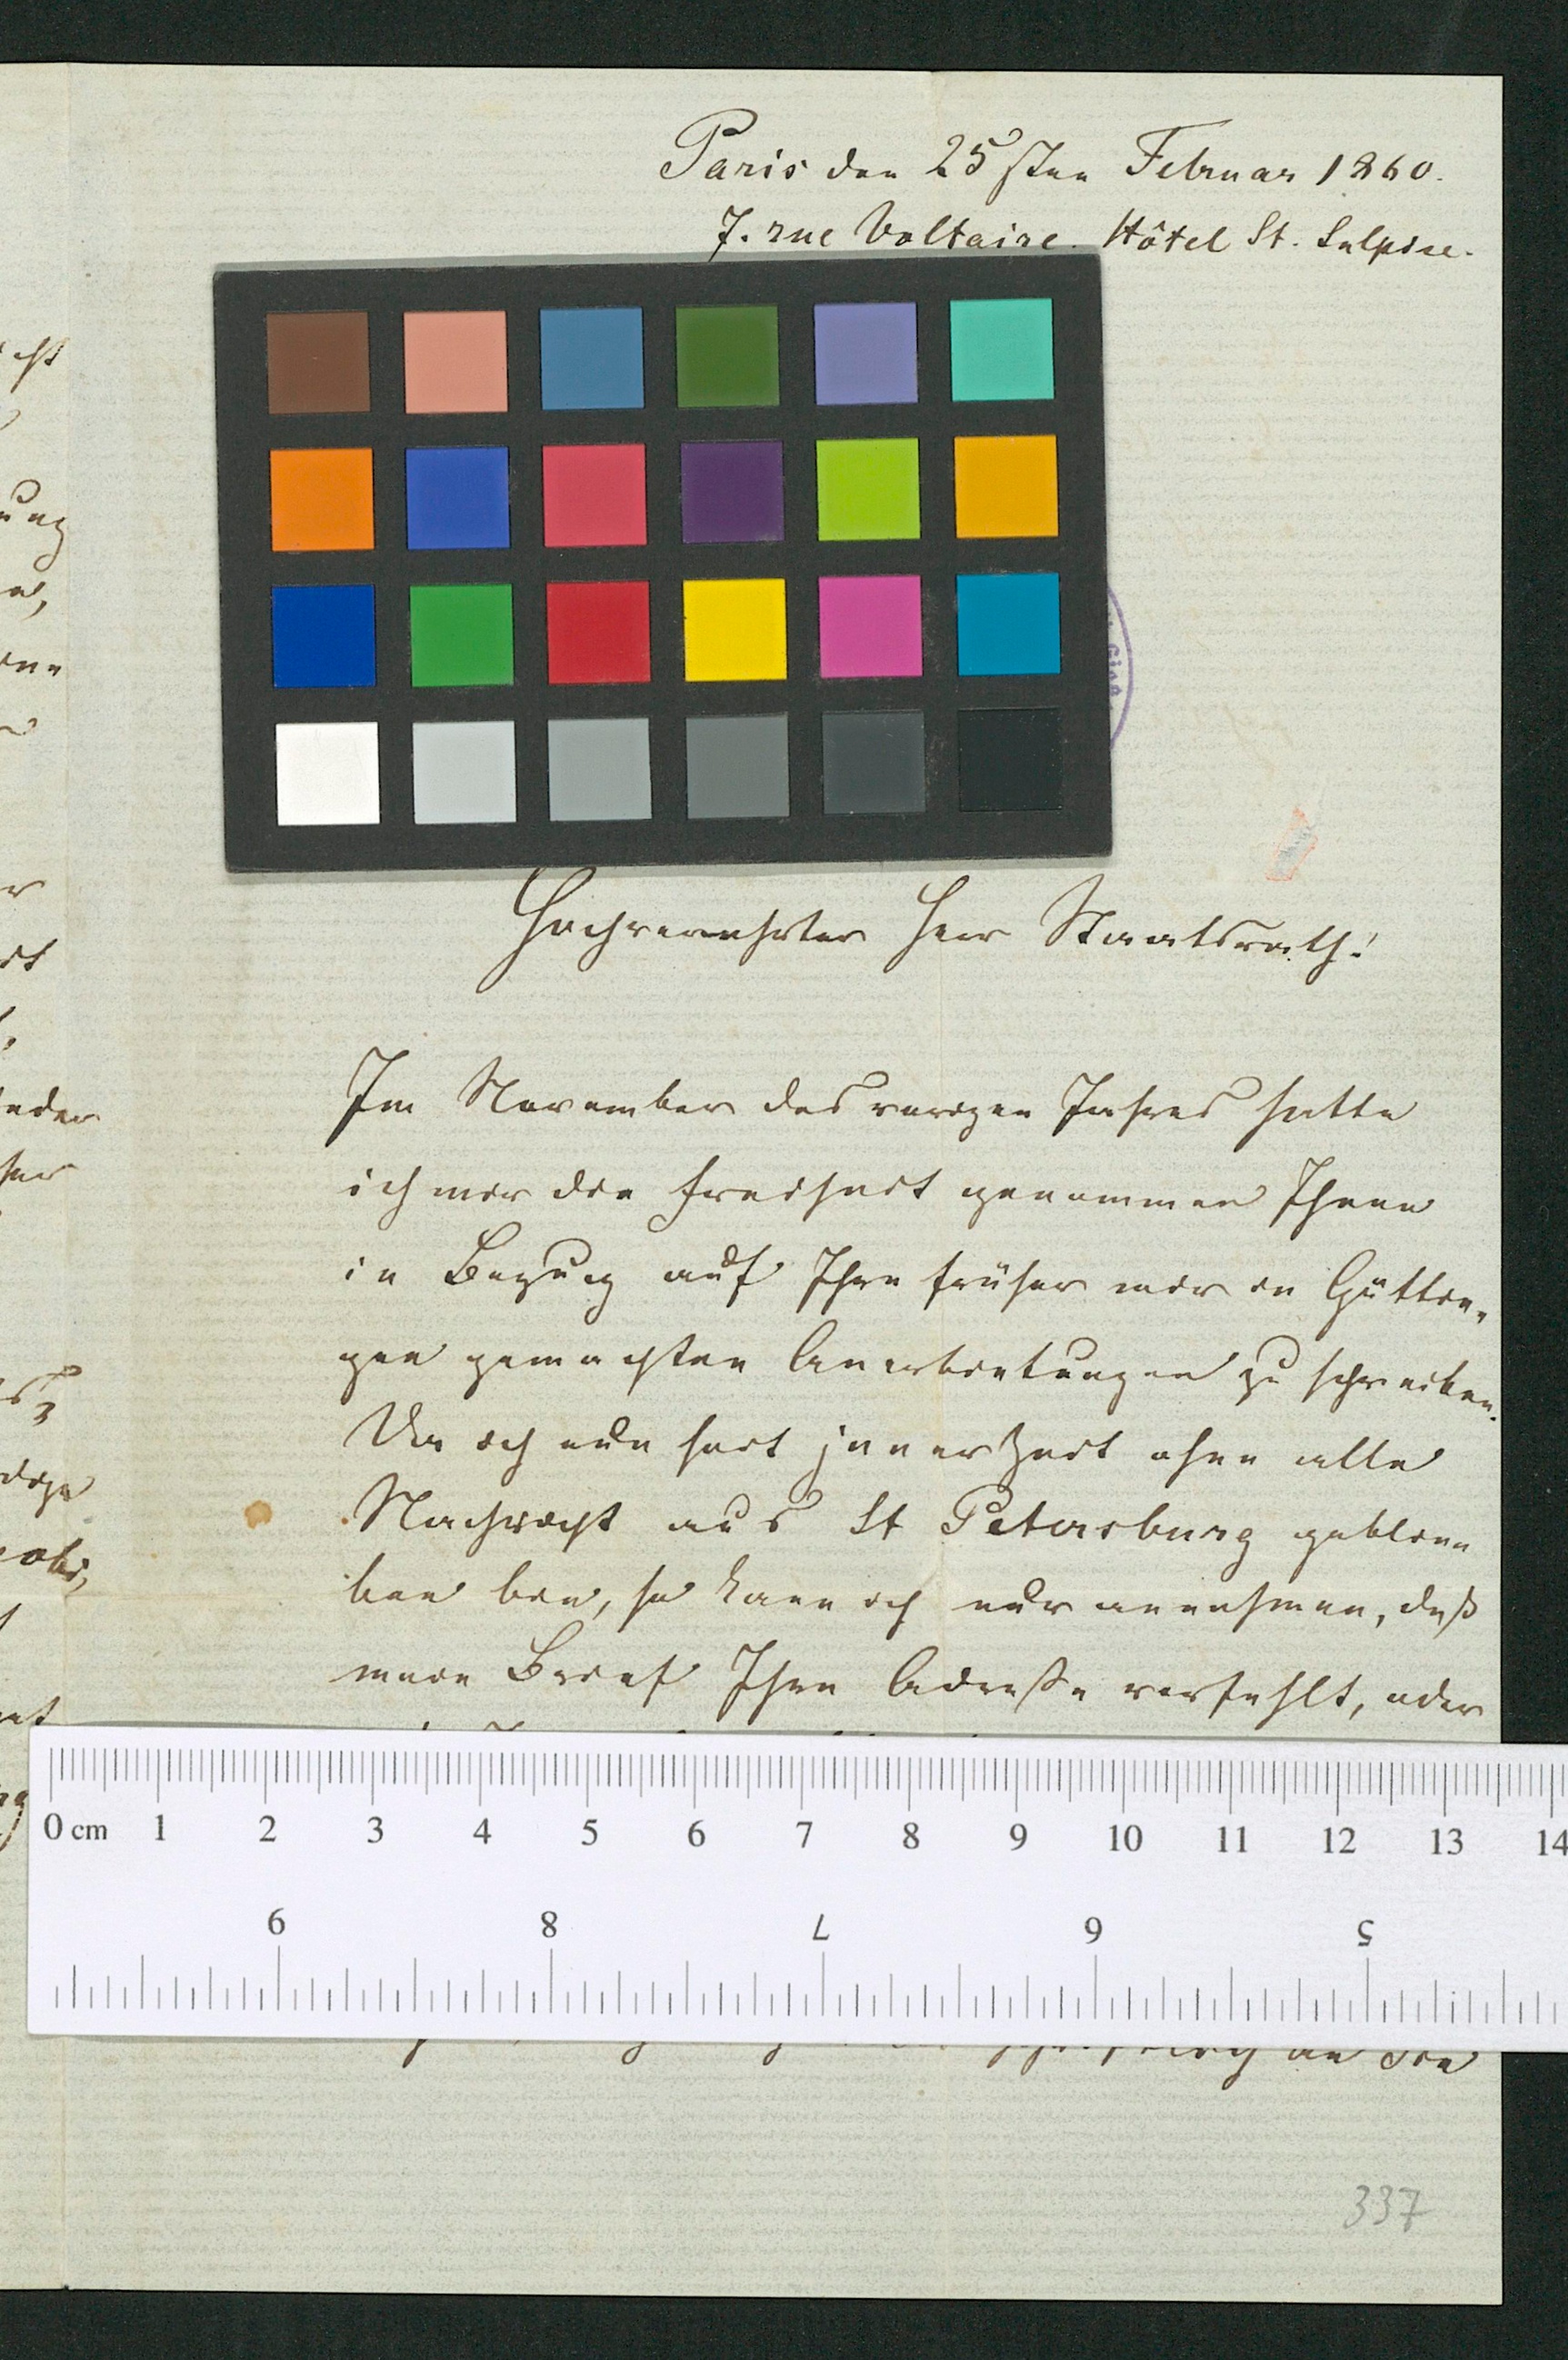 Paris den 25sten Februar 1860.
7. rue Voltaire. Hôtel St. Sulpice.
Hochverehrter Herr Staatsrath!
Im November des vorigen Jahres hatte
ich mir die Freiheit genommen Ihnen
in Bezug auf Ihre früher mir in Göttin-
gen gemachten Anerbietungen zu schreiben.
Da ich nun seit jener Zeit ohne alle
Nachricht aus St Petersburg geblie-
ben bin, so kann ich nur annehmen, daß
mein Brief Ihre Adresse verfehlt, oder
0 cm 1 2 3 4 5 6 7 8 9 10 11 12 13 14
9 8 7 6 5
an Sie
337